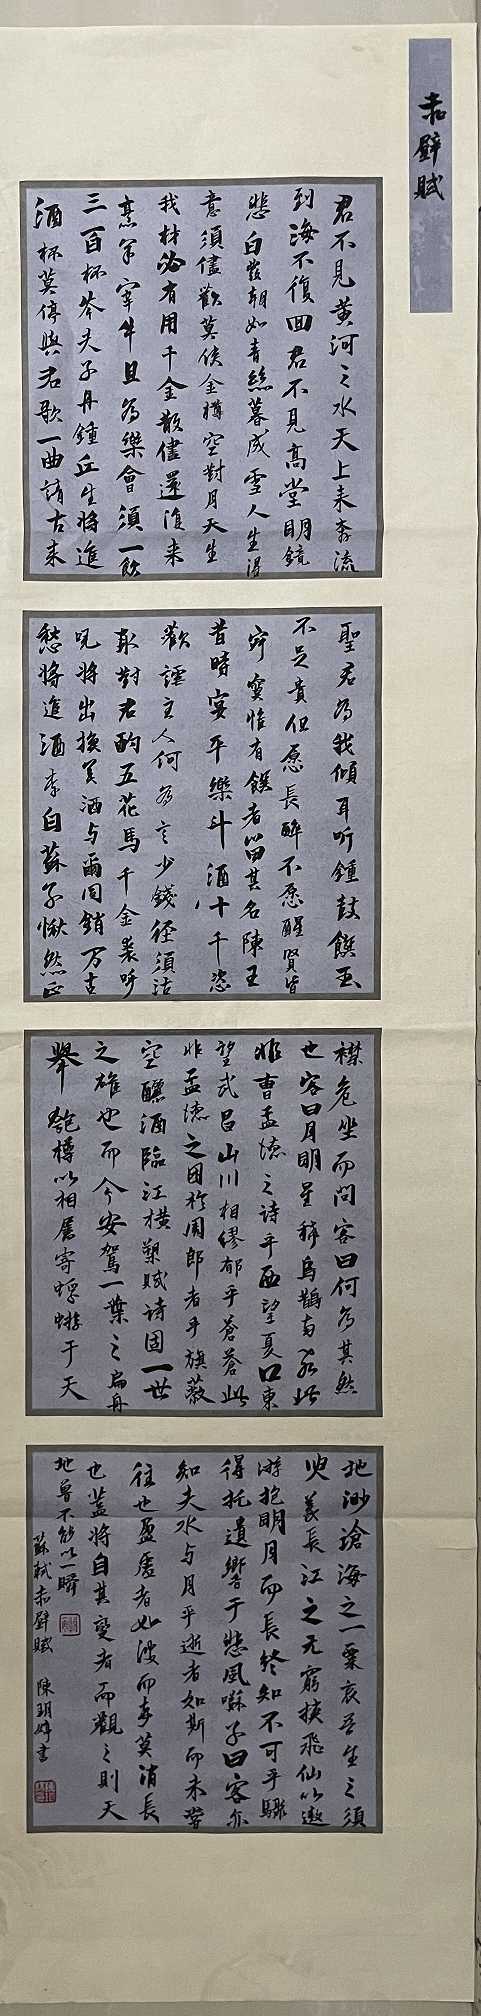 赤壁賦
君不見黃河之水天上来奔流
到海不復回君不見高堂明鏡
悲白髮朝如青絲暮成雪人生得
意須儘歡莫使金樽空對月天生
我材必有用千金散儘還復来
烹羊宰牛且為樂會須一飲
三百杯岑夫子丹鍾丘生將進
酒杯莫停與君歌一曲請古来
聖君為我傾耳听鍾鼓饌玉
不足貴但愿長醉不愿醒賢皆
寂寞惟有饌者留其名陳王
昔時宴平樂斗酒十千恣
歡謔主人何為言少錢径須沽
取對君酌五花馬千金裘呼
児將出換美酒与爾同銷万古
愁將進酒李白蘇子愀然正
襟危坐而問客曰何為其然
也客曰月明星稀烏鵲南飛此
非曹孟德之诗乎西望夏口東
望武昌山川相繆郁乎蒼蒼此
非孟德之困於周郎者乎旗蔽
空釃酒臨江横槊賦诗固一世
之雄也而今安駕一葉之扁舟
舉匏樽以相属寄蜉蝣于天
地渺滄海之一粟哀吾生之須
臾羡長江之无窮挟飛仙以遨
游抱明月而長終知不可乎驟
得托遺響于悲風蘇子曰客亦
知夫水与月乎逝者如斯而未嘗
往也盈虚者如彼而卒莫消長
也蓋將自其變者而觀之則天
地曾不能以一瞬
蘇軾赤壁賦 陳玥婷書